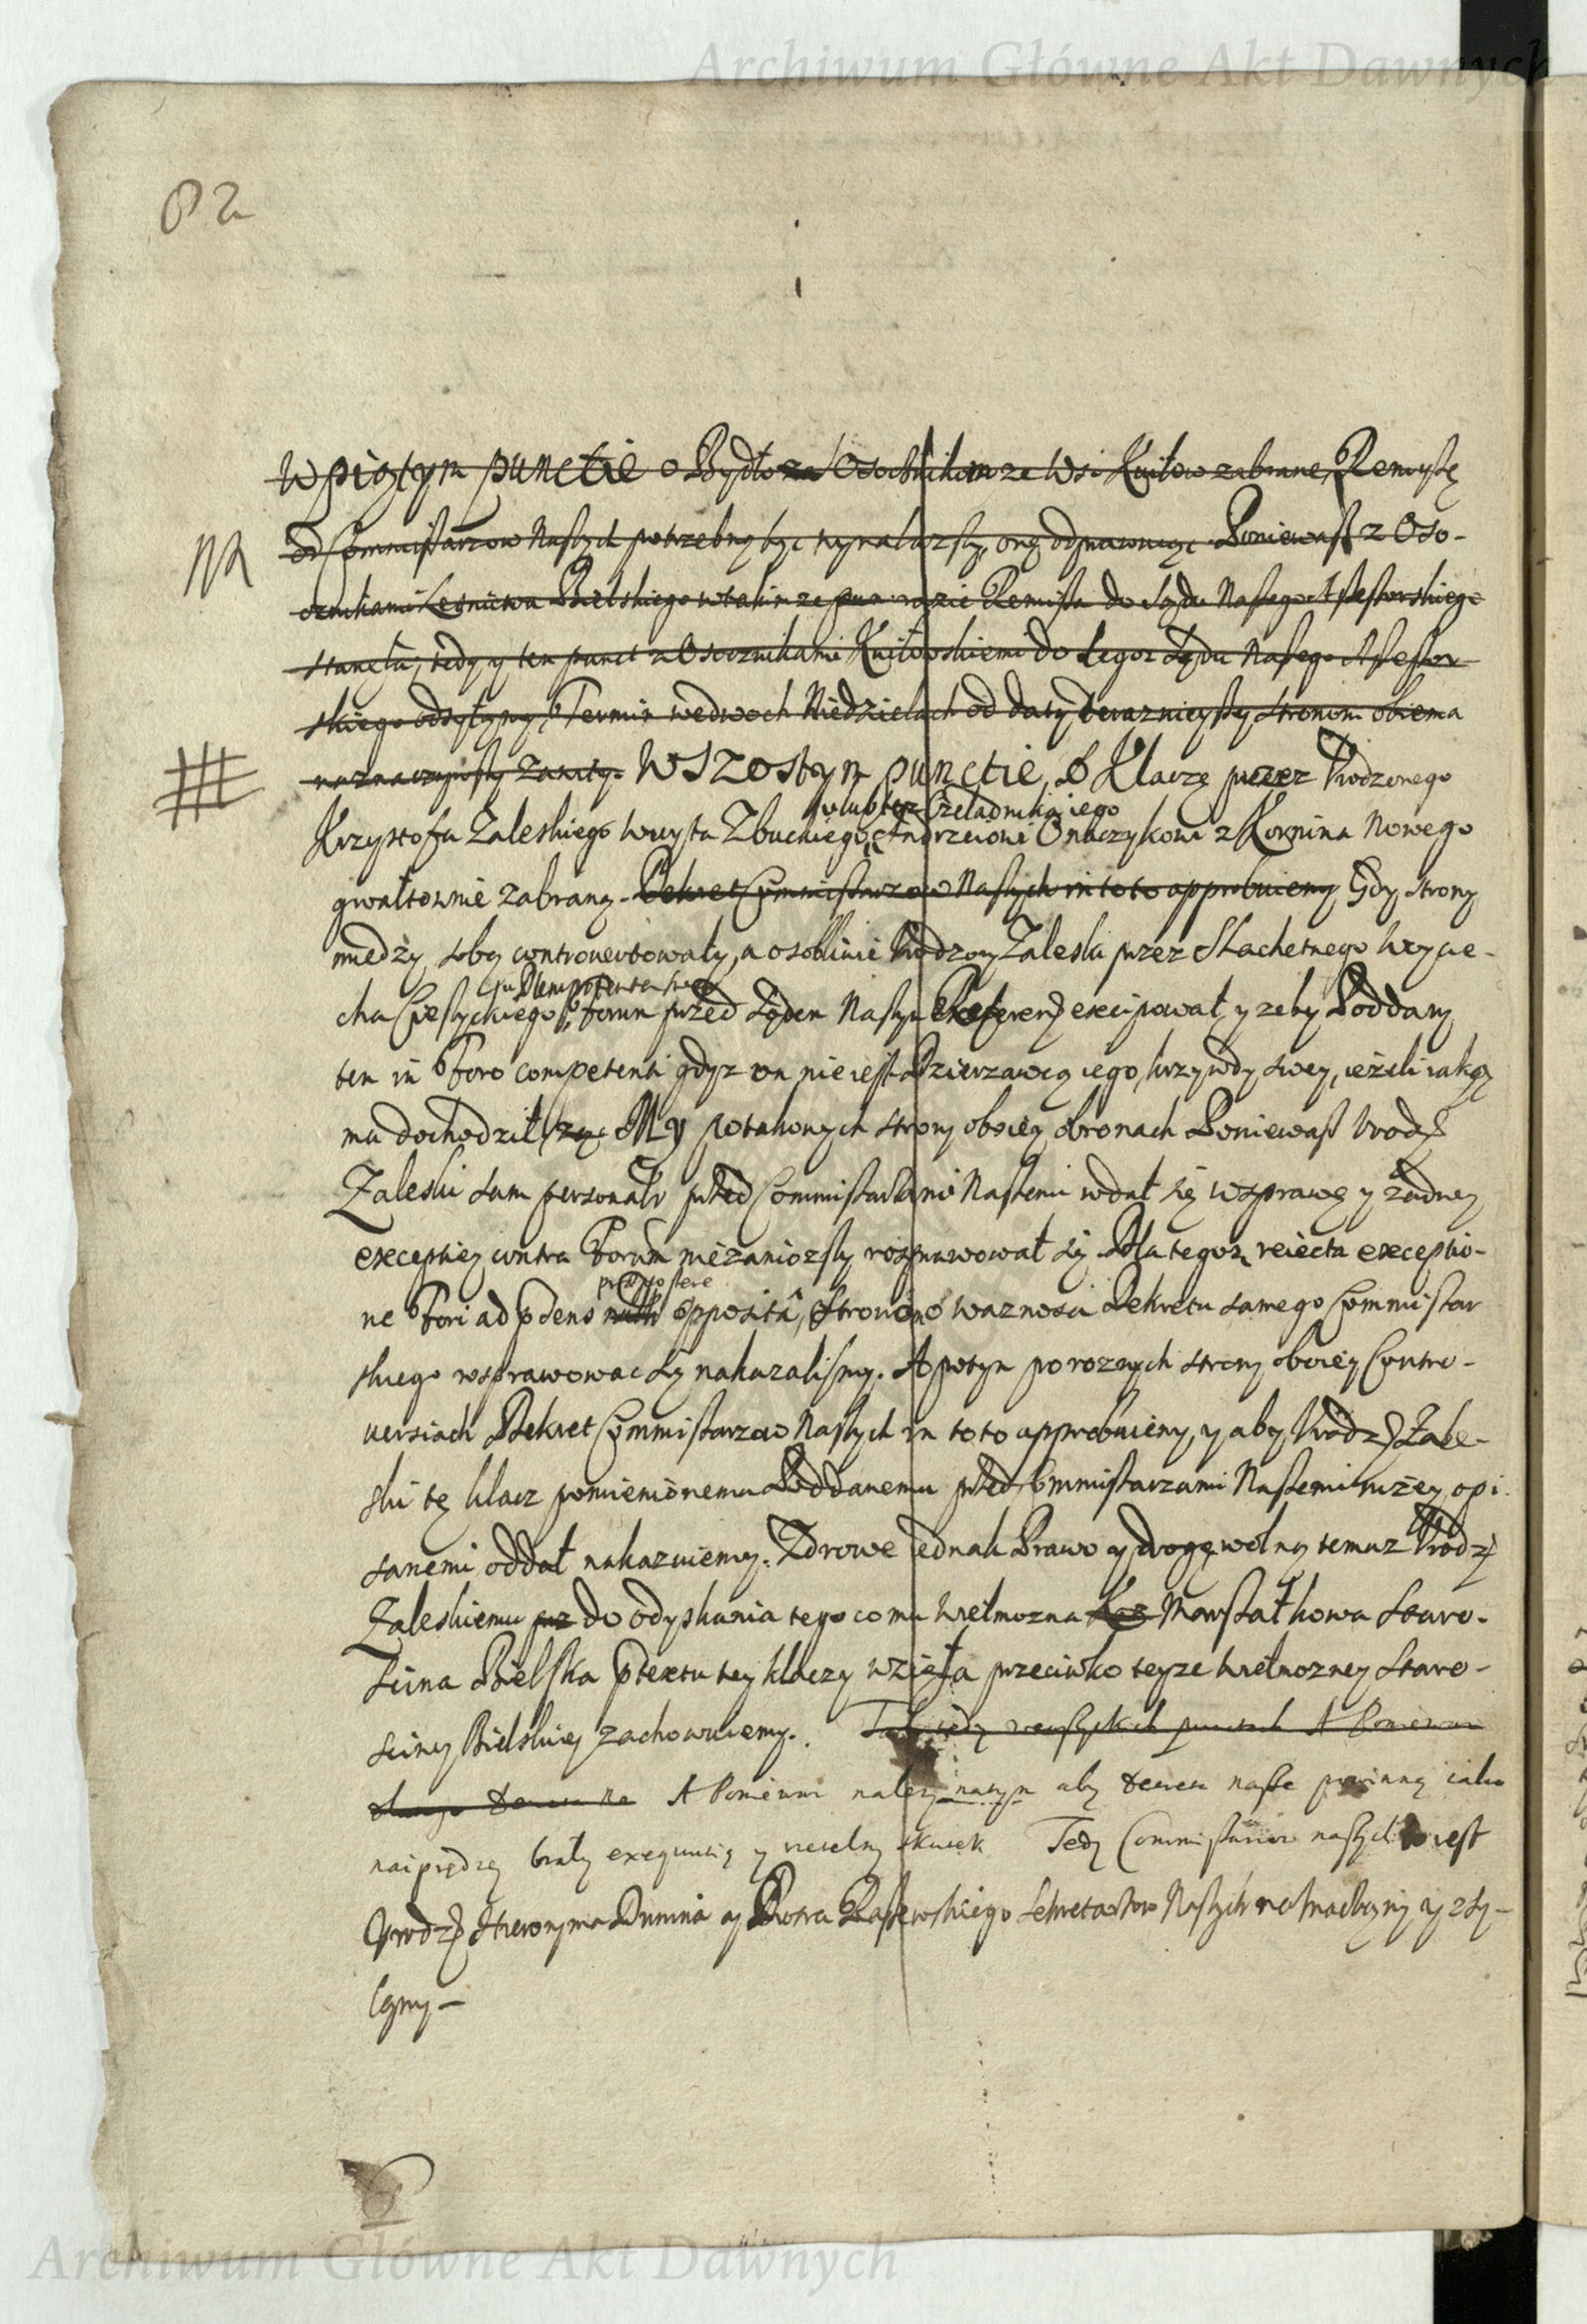 Archiwum Główne Akt Dawnych
82
W piątym punctie o Bydło za Osocznikom ze Wsi Kuiłow zabrane, Remissę
od Commissarzow Naszych potrzebną bydź wynalazszy, onę odprawuiąc. Poniewasz z Oso-
NB
cznikami Leśnictwa Bielskiego w takim ze razie Remissa do Sądu Naszego Assessorskiego
stanęła, tedy y ten punct z Osocznikami Kuiłowskiemi do tegoz Sądu Naszego Assessor-
skiego odsyłamy, Termin we dwoch Niedzielach od daty teraznieyszey stronom obiema
naznaczywszy zawity. W Szostym punctie, o Klaczę przez Urodzonego
albo tez Czeladnika iego
Krzysztofa Zaleskiego Woyta Zbuckiego, Andrzeiowi Onaczykowi z Kornina Nowego
gwałtownie zabraną. Dekret Commissarzow Naszych in toto approbuiemy Gdy strony
miedzy sobą controvertowały, a osobliwie Urodzony Zaleski przez Slachetnego Woycie-
Plenipotenta swego
cha forum przed Sądem Naszym Referen excipował, y zeby Poddany
ten in Foro competenti gdyz on nie iest Dzierzawcą iego, krzywdy swey, iezeli iaką
ma dochodził, My po takowych strony oboiey obronach Poniewasz Urodz
Zaleski sam personalr przed Commissarzami Naszemi wdał się w sprawę y zadney
exceptiey contra Forum nie zaniozszy rosprawował się. Dla tegoz, reiecta exceptio-
præpostere
ne Fori ad pdens opposita, Stronom o waznosci Dekretu samego Commissar
skiego rosprawowac się nakazalismy. A potym po roznych strony oboiey Contro-
versiach Dekret Commissarzow Naszych in toto approbuiemy, y aby Urodz Zale-
ski tę klacz pomienionemu Poddanemu przed Commissarzami Naszemi nizey opi-
sanemi oddał nakazuiemy. Zdrowe iednak Prawo y drogę wolną temuz Urodz
Zaleskiemu do odyskania tego co mu Wielmozna Marszałkowa Staro-
scina Bielska ptextu tey klaczy wzięła przeciwko teyze Wielmozney Staro-
sciney Bielskiey zachowuiemy. Tak tedy we wszystkich punctach A Poniewasz
A Poniewasz nalezy na tym aby decreta nasze powinną iako
naiprędzey brały exequutię y rzetelny skutek Tedy Commissarzow naszych to iest
Urodz Hieronyma Dunina y Piotra Sekretarzow Naszych naznaczamy y zsy-
łamy –
Archiwum Główne Akt Dawnych